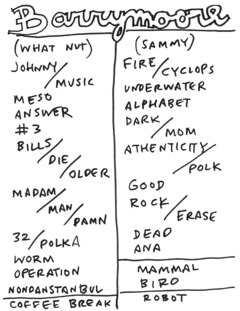 Barrymoore
(WHAT NUT)
JOHNNY/
MUSIC
MESO
ANSWER
#3
BILLS/
DIE/
OLDER
MADAM/
MAN/
DAMN
32/POLKA
WORM
OPERATION
NONDANSTANBUL
COFFEE BREAK
(SAMMY)
FIRE/
CYCLOPS
UNDERWATER
ALPHABET
DARK/
MOM
ATHENTICITY/
POLK
GOOD
ROCK/
ERASE
DEAD
ANA
MAMMAL
BIRD
ROBOT